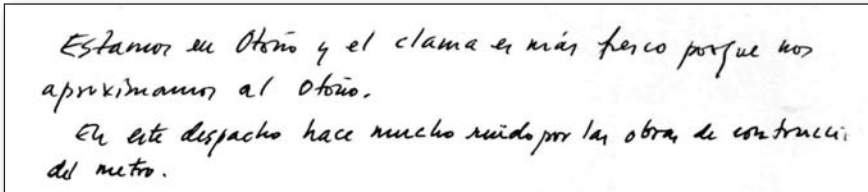 Estamos en Otoño y el clama es más fresco porque nos
aproximamos al Otoño.
En este despacho hace mucho ruido por las obras de contrucci
del metro.